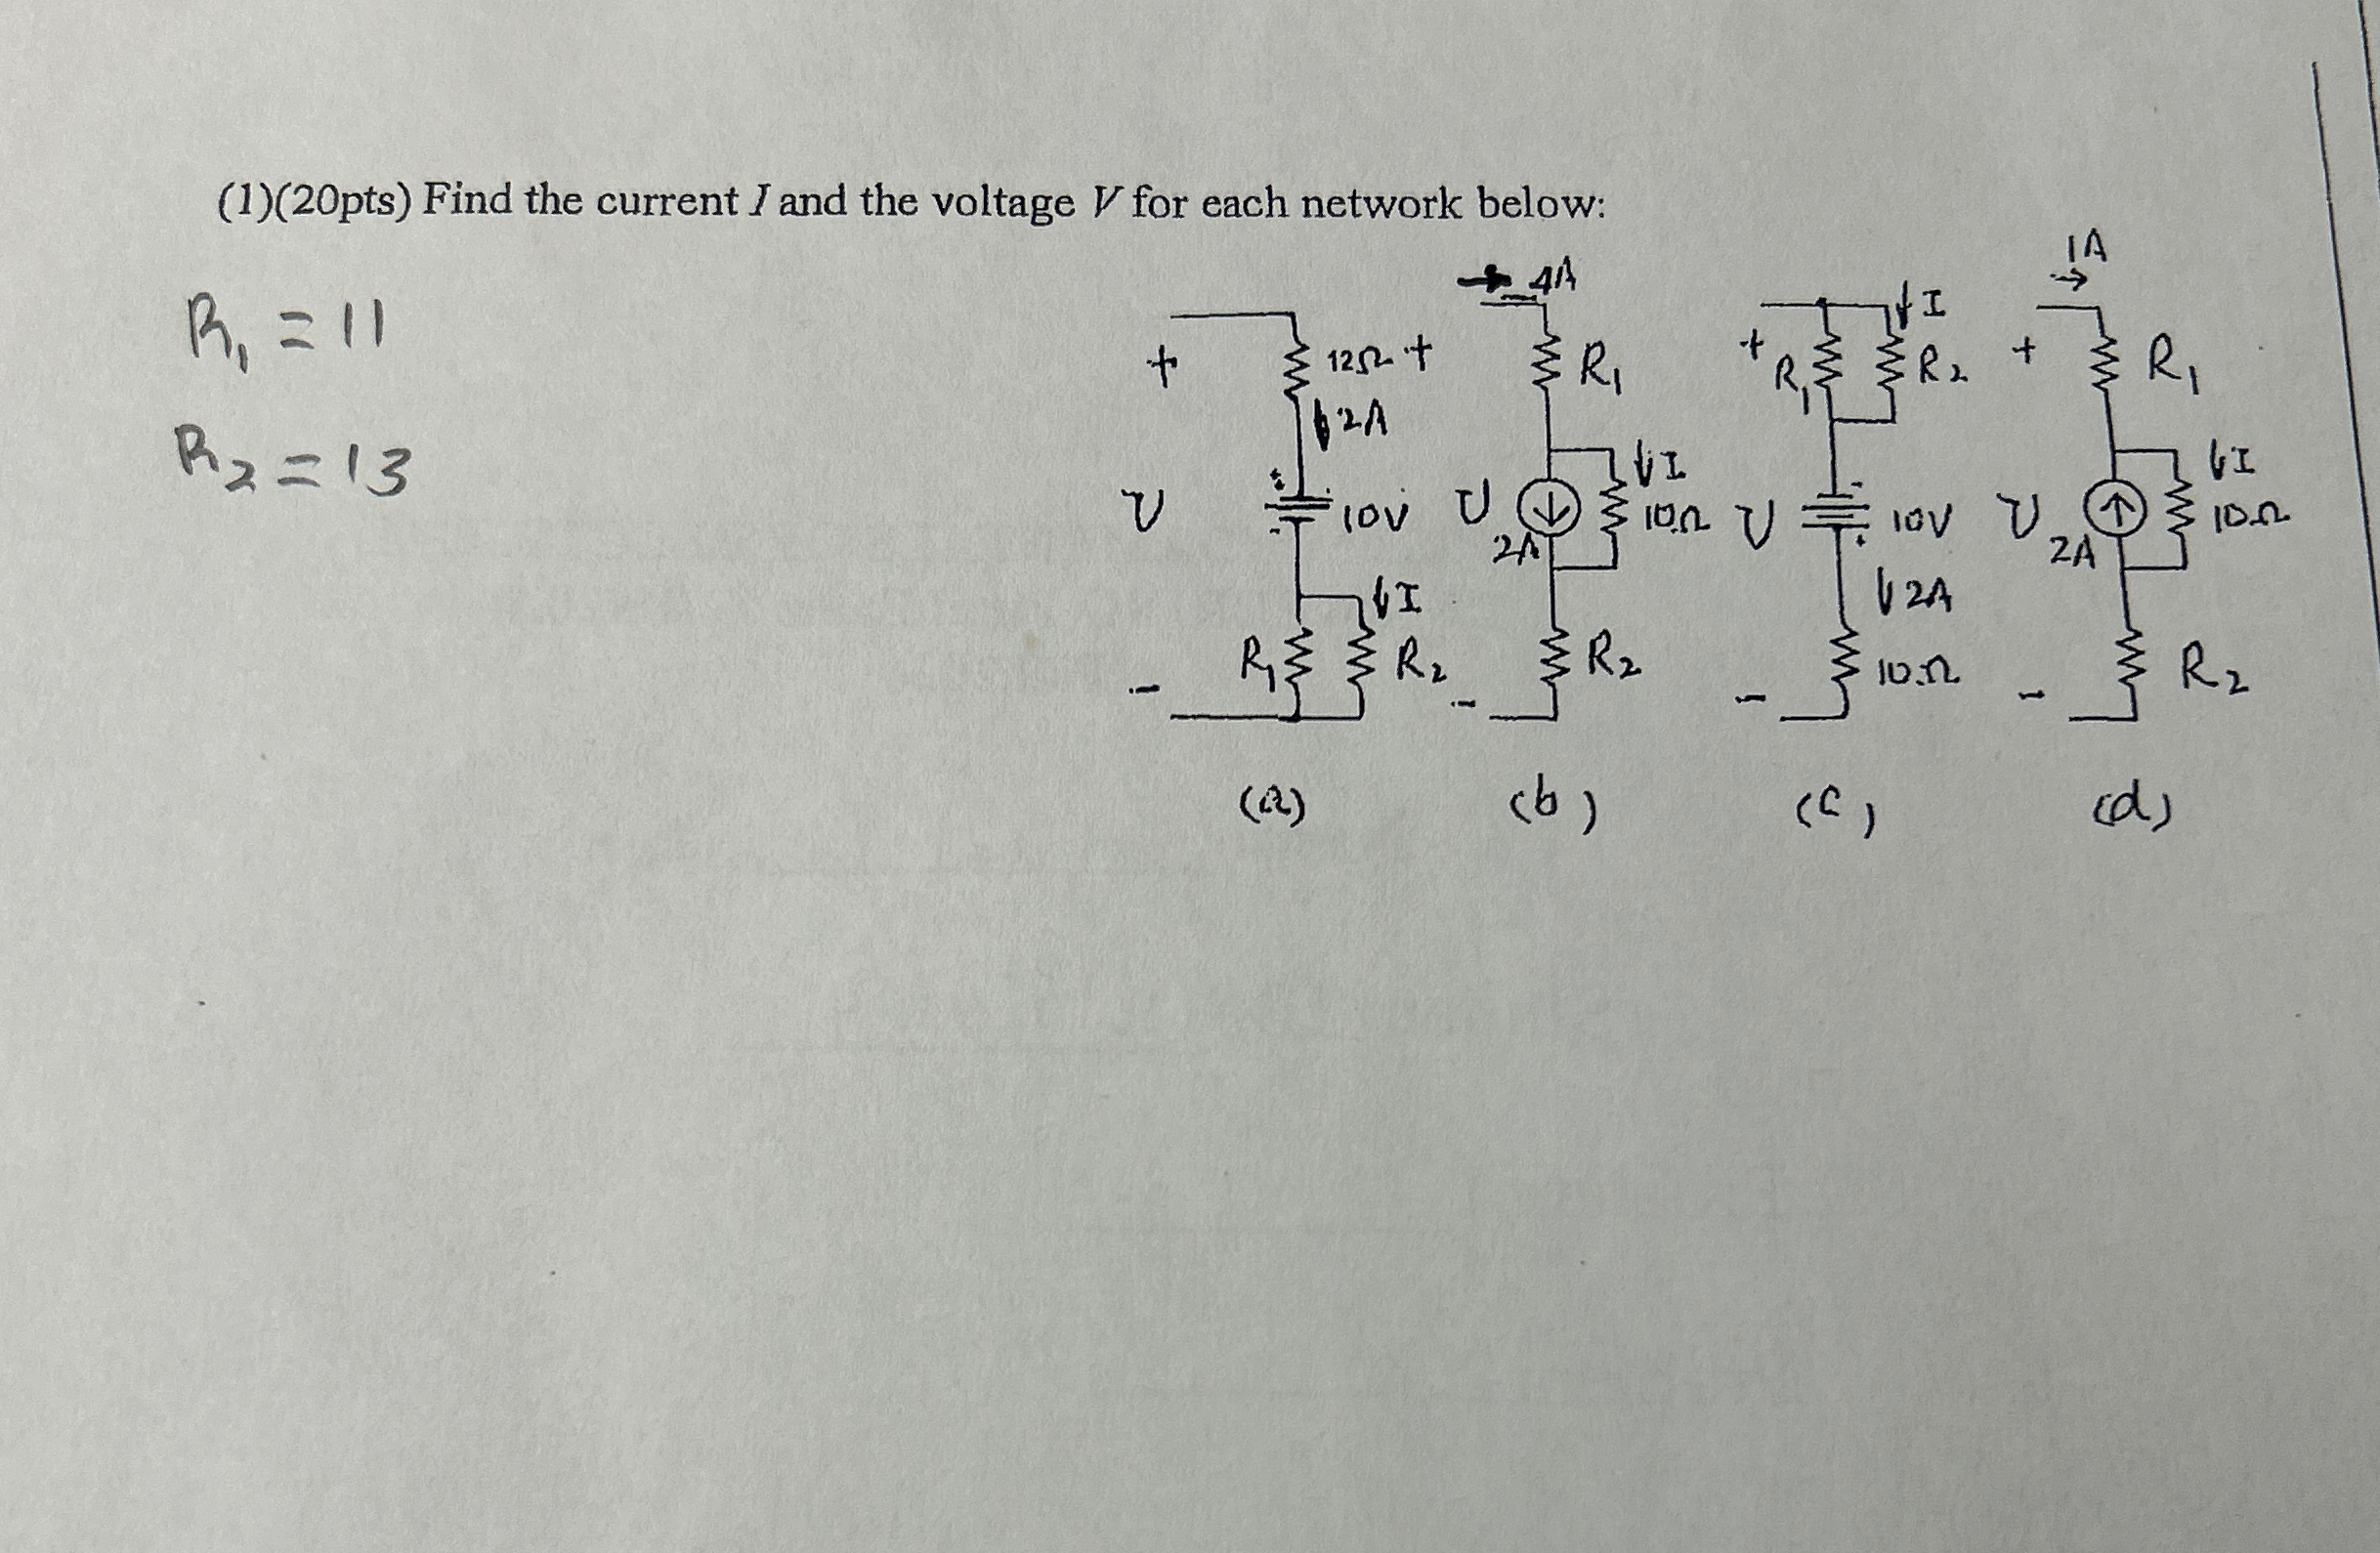 (1)(20pts) Find the current I and the voltage V for each network below:
R₁ = 11
R₂ = 13
+
V
-
12Ω
2A
+
-
10V
I
R₁
R₂
(a)
4A
+
V
-
R₁
I
2A
10Ω
R₂
(b)
I
+
V
-
R₁
R₂
-
10V
+
2A
10Ω
(c)
1A
+
V
-
R₁
I
2A
10Ω
R₂
(d)